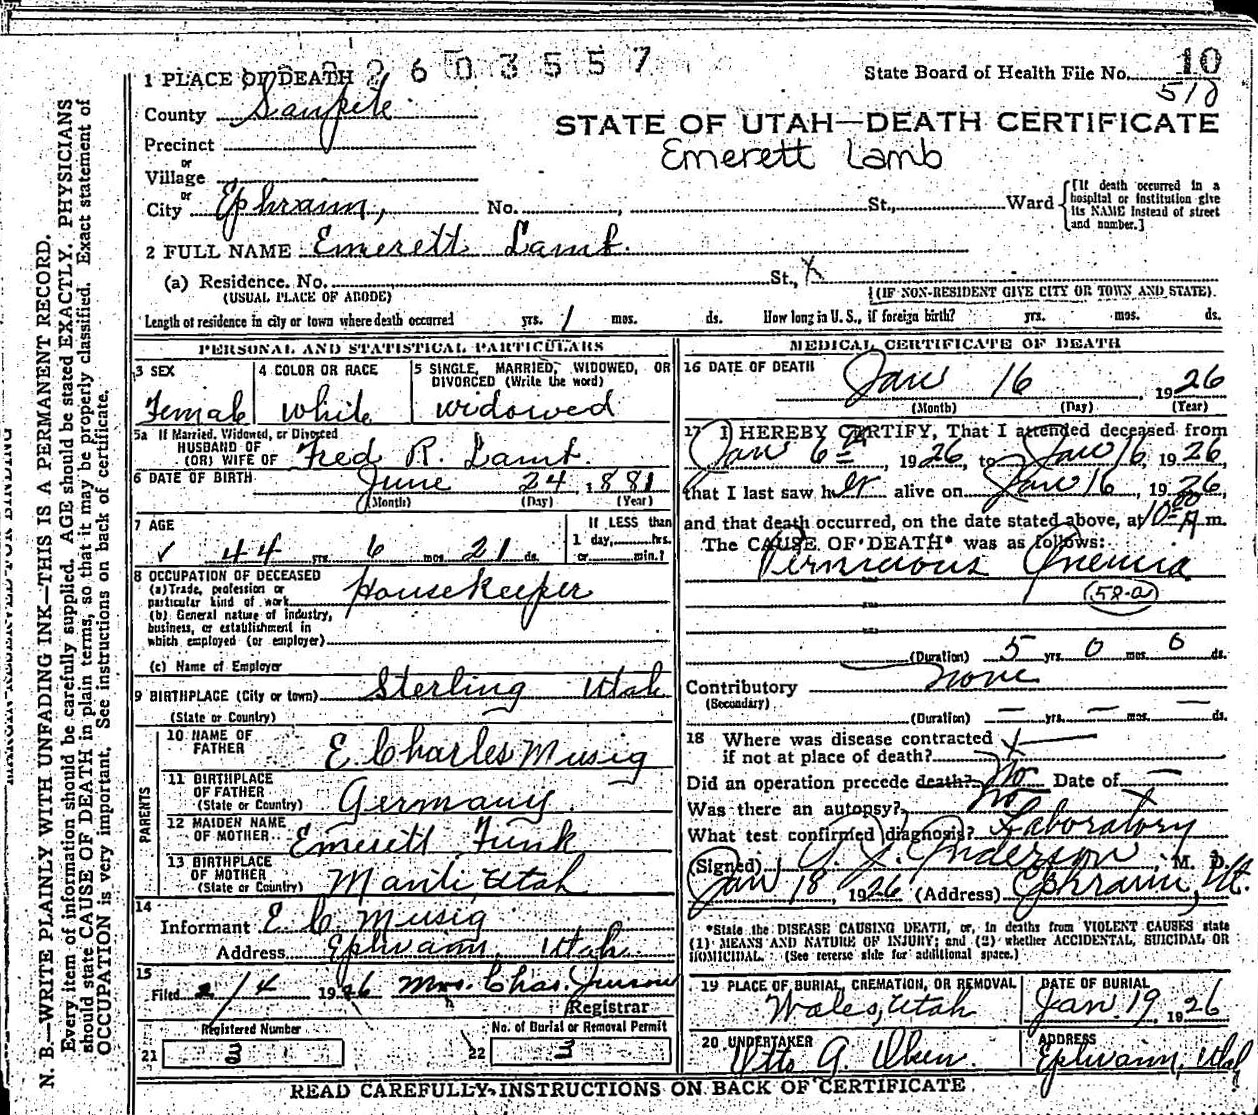 2603557
1 PLACE OF DEATH
State Board of Health File No. 10
518
County Sanpete
STATE OF UTAH—DEATH CERTIFICATE
Emerett Lamb
Precinct
or
Village
or
City Ephraim, No. , St., Ward
[If death occurred in a hospital or institution give its NAME instead of street and number.]
2 FULL NAME Emerett Lamb.
(a) Residence. No. St., X
(USUAL PLACE OF ABODE)
(IF NON-RESIDENT GIVE CITY OR TOWN AND STATE).
Length of residence in city or town where death occurred yrs. 1 mos. ds. How long in U. S., if foreign birth? yrs. mos. ds.
PERSONAL AND STATISTICAL PARTICULARS
3 SEX
Female
4 COLOR OR RACE
White
5 SINGLE, MARRIED, WIDOWED, OR
DIVORCED (Write the word)
widowed
5a If Married, Widowed, or Divorced
HUSBAND OF
(OR) WIFE OF Fred R. Lamb.
6 DATE OF BIRTH June 24, 1881
(Month) (Day) (Year)
7 AGE
✓ 44 yrs 6 mos. 21 ds.
If LESS than
1 day, hrs.
or min.?
8 OCCUPATION OF DECEASED
(a) Trade, profession or
particular kind of work Housekeeper
(b) General nature of industry,
business, or establishment in
which employed (or employer)
(c) Name of Employer
9 BIRTHPLACE (City or town) Sterling Utah
(State or Country)
PARENTS
10 NAME OF
FATHER E Charles Musig
11 BIRTHPLACE
OF FATHER
(State or Country) Germany.
12 MAIDEN NAME
OF MOTHER Emerett Funk
13 BIRTHPLACE
OF MOTHER
(State or Country) Manti Utah
14
Informant E. C. Musig
Address Ephraim, Utah
15
Filed 2/4 1926 Mrs. Chas.
Registrar
Registered Number
21 3
No. of Burial or Removal Permit
22 3
MEDICAL CERTIFICATE OF DEATH
16 DATE OF DEATH
Jan 16 1926
(Month) (Day) (Year)
17 I HEREBY CERTIFY, That I attended deceased from
Jan 6th, 1926, to Jan 16, 1926,
that I last saw her alive on Jan 16, 1926,
and that death occurred, on the date stated above, at 10:00 A.m.
The CAUSE OF DEATH* was as follows:
Pernicious Anemia
58-a
(Duration) 5 yrs. 0 mos. 0 ds.
Contributory none
(Secondary)
(Duration) — yrs. — mos. — ds.
18 Where was disease contracted
if not at place of death? X
Did an operation precede death? No Date of —
Was there an autopsy? no
What test confirmed diagnosis? Laboratory
(Signed) Anderson M. D.
Jan 18 1926 (Address) Ephraim, Ut.
*State the DISEASE CAUSING DEATH, or, in deaths from VIOLENT CAUSES state
(1) MEANS AND NATURE OF INJURY; and (2) whether ACCIDENTAL, SUICIDAL OR
HOMICIDAL. (See reverse side for additional space.)
19 PLACE OF BURIAL, CREMATION, OR REMOVAL
Wales, Utah
DATE OF BURIAL
Jan 19, 1926
20 UNDERTAKER
Otto A. Olsen.
ADDRESS
Ephraim, Utah
READ CAREFULLY INSTRUCTIONS ON BACK OF CERTIFICATE
N. B.—WRITE PLAINLY WITH UNFADING INK—THIS IS A PERMANENT RECORD.
Every item of information should be carefully supplied. AGE should be stated EXACTLY. PHYSICIANS
should state CAUSE OF DEATH in plain terms, so that it may be properly classified. Exact statement of
OCCUPATION is very important. See instructions on back of certificate.